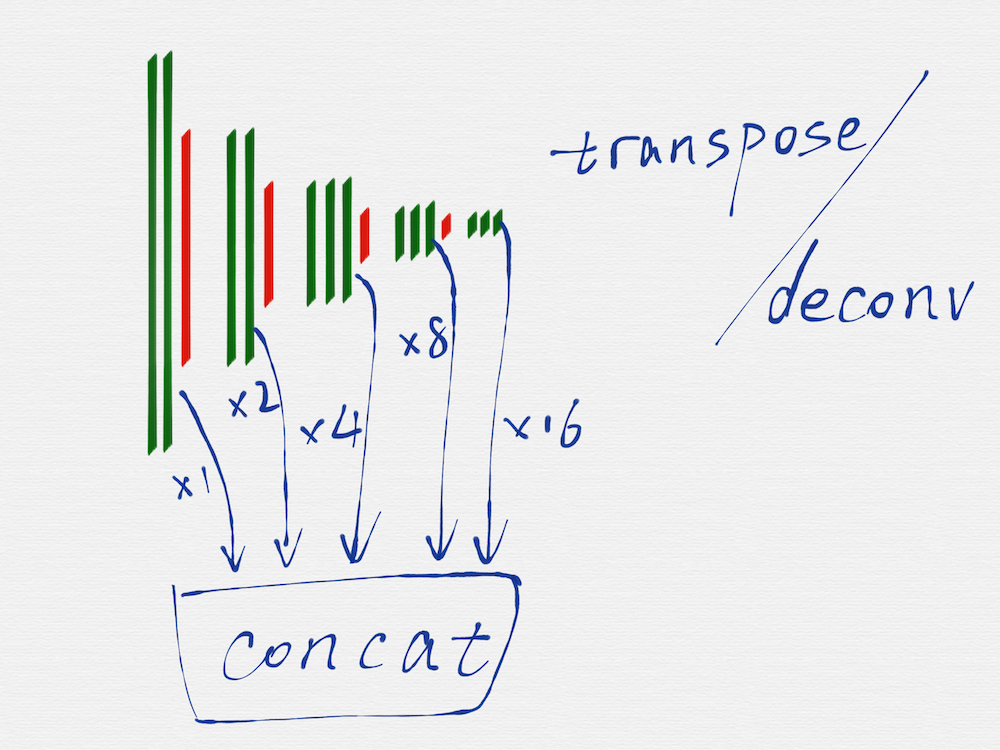 transpose/
deconv
x8
x2
x4
x16
x1
concat